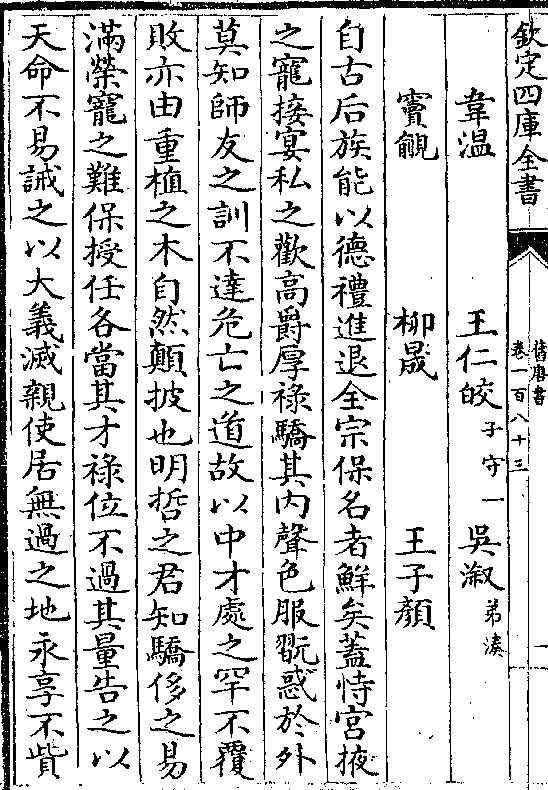 欽定四庫全書
舊唐書
卷一百八十三
一
韋溫 王仁皎 子守一 吳溆 弟湊
竇覦 柳晟 王子顏
自古后族能以德禮進退全宗保名者鮮矣蓋恃宮掖
之寵接宴私之歡高爵厚祿驕其内聲色服翫惑於外
莫知師友之訓不達危亡之道故以中才處之罕不覆
敗亦由重植之木自然顛披也明哲之君知驕侈之易
滿榮寵之難保授任各當其才祿位不過其量告之以
天命不易誡之以大義滅親使居無過之地永享不貲